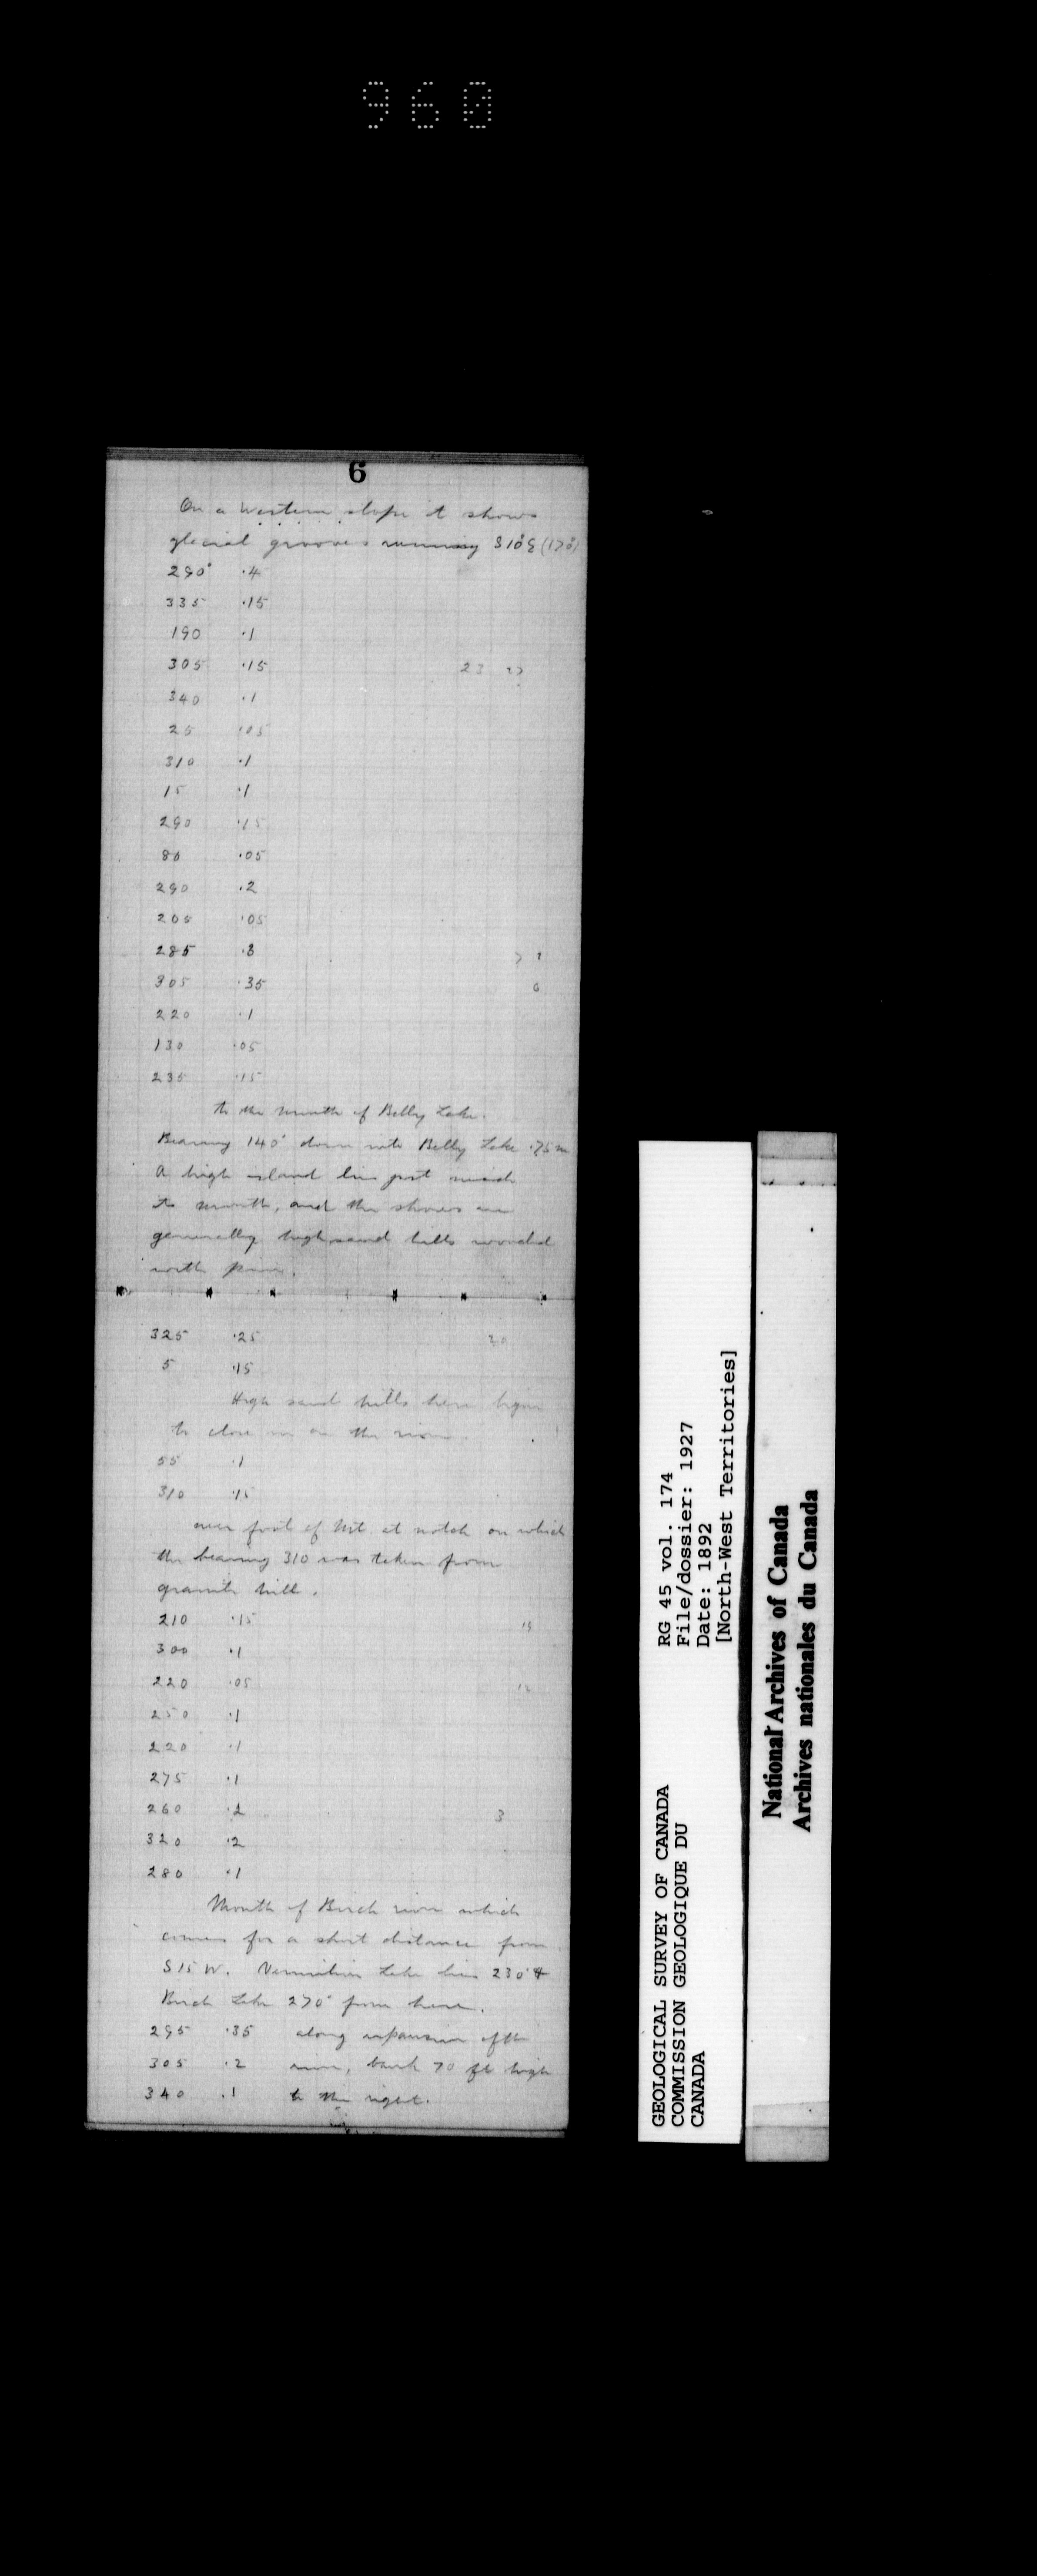 960
6
On a Western slope it shows
glacial grooves running S10°E (170°)
290° .4
335 .15
190 .1
305 .15 23
340 .1
25 .05
310 .1
15 .1
290 .15
80 .05
290 .2
205 .05
285 .3
305 .35 6
220 .1
130 .05
235 .15
to the mouth of Belly Lake.
Bearing 140° down into Belly Lake .75 m
A high island lies just inside
its mouth, and the shores are
generally high sand hills wooded
with pine.
325 .25
5 .15
High sand hills here begin
to close in on the river.
55 .1
310 .15
over foot of Mt. at notch on which
the bearing 310 was taken from
granite hill.
210 .15 15
300 .1
220 .05 12
250 .1
220 .1
275 .1
260 .2 3
320 .2
280 .1
Mouth of Birch river which
comes for a short distance from
S15W. Vermilion Lake lies 230° &
Birch Lake 270° from here.
295 .35 along expansion of the
305 .2 river, bank 70 ft high
340 .1 to the right.
GEOLOGICAL SURVEY OF CANADA RG 45 vol. 174
COMMISSION GEOLOGIQUE DU File/dossier: 1927
CANADA Date: 1892
[North-West Territories]
National Archives of Canada
Archives nationales du Canada